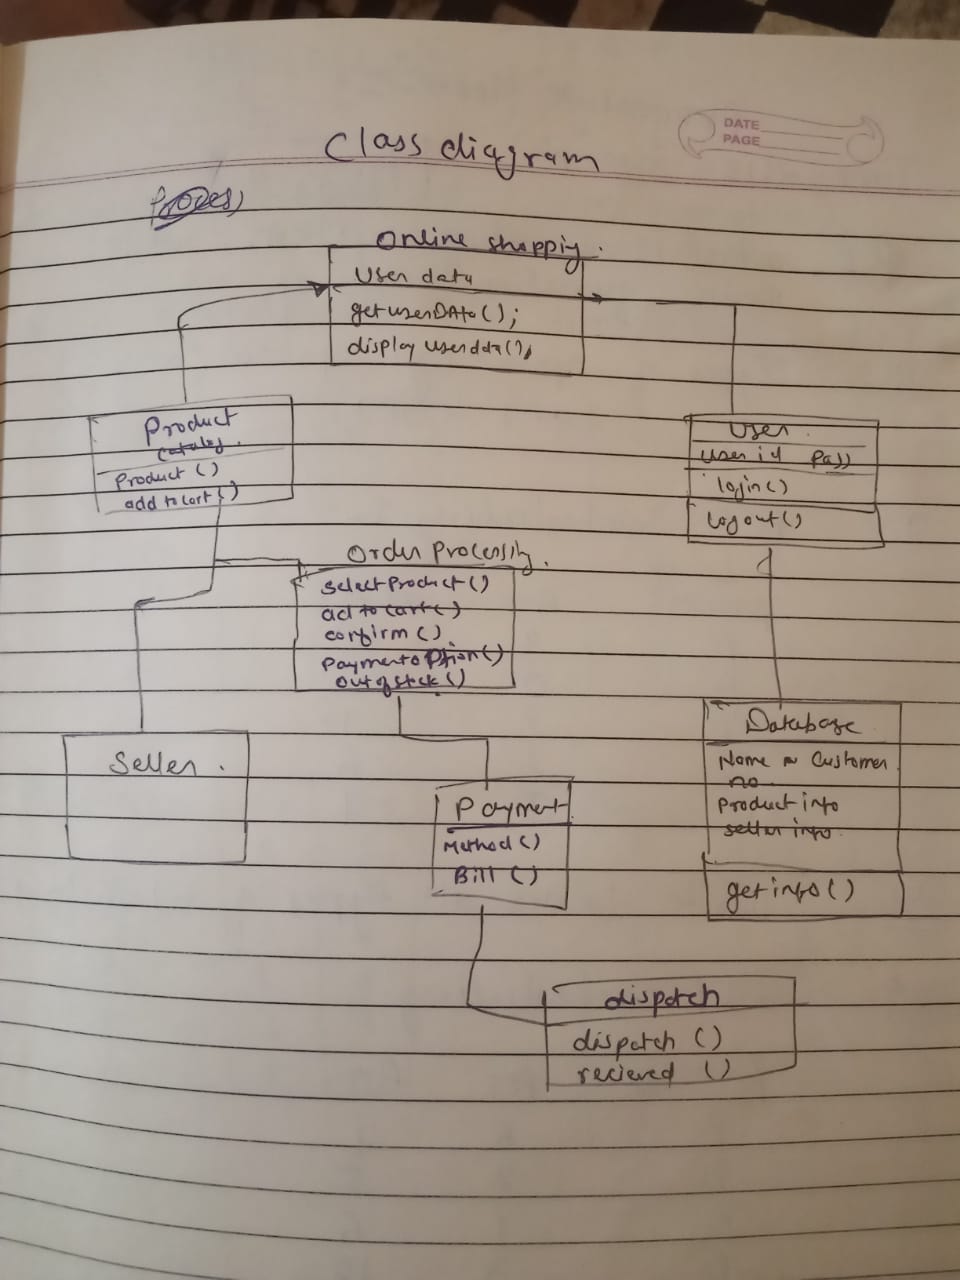 DATE
PAGE
Class diagram
Online shoppig.
User data
getuserDAta();
display userdda();
Product
catalog.
Product ()
add to cart()
User.
User id Pass
login()
logout()
Order Processing.
Select Product()
ad to cart()
confirm()
Payment option()
out of stck()
Seller.
Payment
Method()
Bill ()
Database
Name n Customer
no
Product info
seller info.
get info ()
dispatch
dispatch ()
recieved ()